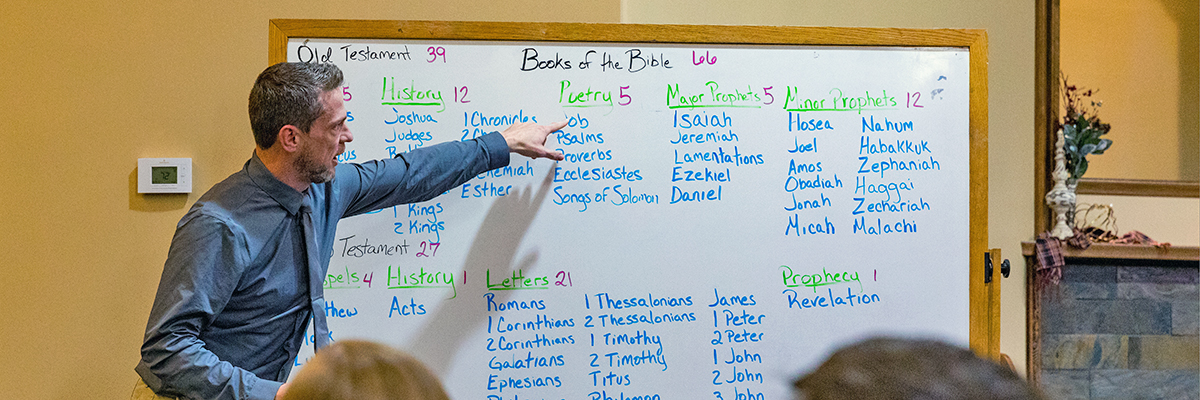 Old Testament 39
Books of the Bible 66
5
History 12
Joshua
Judges
1 Kings
2 Kings
1 Chronicles
Esther
Poetry 5
Psalms
Proverbs
Ecclesiastes
Songs of Solomon
Major Prophets 5
Isaiah
Jeremiah
Lamentations
Ezekiel
Daniel
Minor Prophets 12
Hosea
Joel
Amos
Obadiah
Jonah
Micah
Nahum
Habakkuk
Zephaniah
Haggai
Zechariah
Malachi
Testament 27
4
History 1
Acts
Letters 21
Romans
1 Corinthians
2 Corinthians
Galatians
Ephesians
1 Thessalonians
2 Thessalonians
1 Timothy
2 Timothy
Titus
Philemon
James
1 Peter
2 Peter
1 John
2 John
3 John
Prophecy 1
Revelation